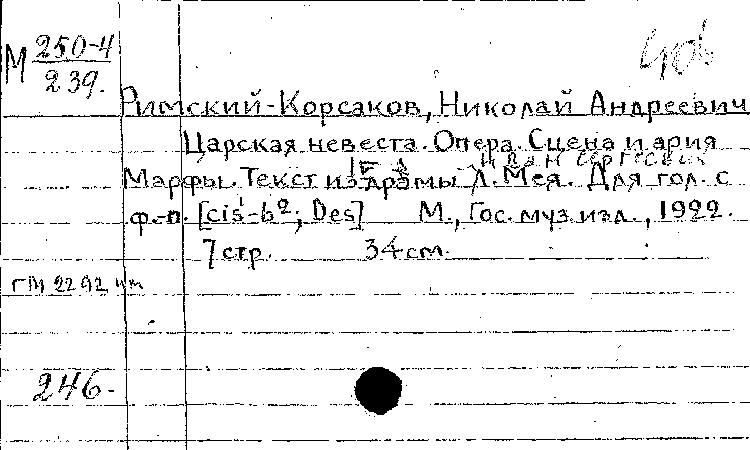 М 250-4
239.
Римский-Корсаков, Николай Андреевич
Царская невеста. Опера. Сцена и ария
Марфы. Текст из драмы Л. Мея. Для гол. с
ф.-п. [cis¹-b²; Des] М., Гос. муз. изд., 1922.
7 стр. 34 см.
ГМ 2292
246.